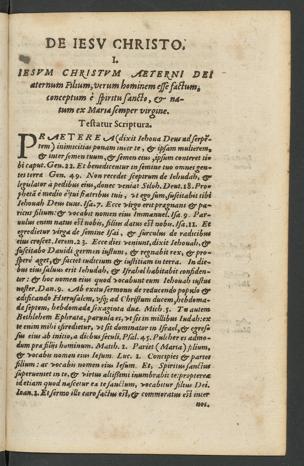 DE IESV CHRISTO.
I.
IESVM CHRISTVM AETERNI DEI
aeternum Filium, verum hominem esse factum,
conceptum è spiritu sancto, & na-
tum ex Maria semper virgine.
Testatur Scriptura.
PRAETEREA (dixit Iehoua Deus ad serpē-
tem) inimicitias ponam inter te, & ipsam mulierem,
& inter semen tuum, & semen eius, ipsum conteret ti-
bi caput. Gen. 22. Et benedicentur in semine tuo omnes gen-
tes terrae Gen. 49. Non recedet sceptrum de Iehudah, &
legislator à pedibus eius, donec veniat Siloh. Deut. 18. Pro-
phetā e medio tui, fratribus tuis, vt ego sum, suscitabit tibi
Iehouah Deus tuus. Isa. 7. Ecce virgo erit praegnans & pa-
riens filium: & vocabit nomen eius Immanuel. Isa. 9. Par-
uulus enim natus est nobis, filius datus est nobis. Isa. 11. Et
egredietur virga de semine Isai, & surculus de radicibus
eius crescet. Ierem. 23. Ecce dies veniunt, dixit Iehouah, &
suscitabo Dauidi germen iustum, & regnabit rex, & pro-
sperè aget, & faciet iudicium & iustitiam in terra. In die-
bus eius saluus erit Iehudah, & Israhel habitabit confiden-
ter: & hoc nomen eius quod vocabunt eum Iehouah iustus
noster. Dan. 9. Ab exitu sermonis de reducendo populo &
aedificando Hierusalem, vsq; ad Christum ducem, hebdoma-
de septem, hebdomade sexaginta duae. Mich. 5. Tu autem
Bethlehem Ephrata, paruula es, vt sis in millibus Iudah: ex
te enim mihi egredietur, vt sit dominator in Israel, & egres-
sus eius ab initio, a diebus seculi. Psal. 45. Pulcher es admo-
dum prae filijs hominum. Math. 1. Pariet (Maria) filium,
& vocabis nomen eius Iesum. Luc. 1. Concipies & paries
filium: ac vocabis nomen eius Iesum. Et, Spiritus sanctus
superueniet in te, & virtus altissimi inumbrabit te: propterea
id etiam quod nascetur ex te sanctum, vocabitur filius Dei.
Ioan. 1. Et sermo ille caro factus est, & commoratus est inter
nos.